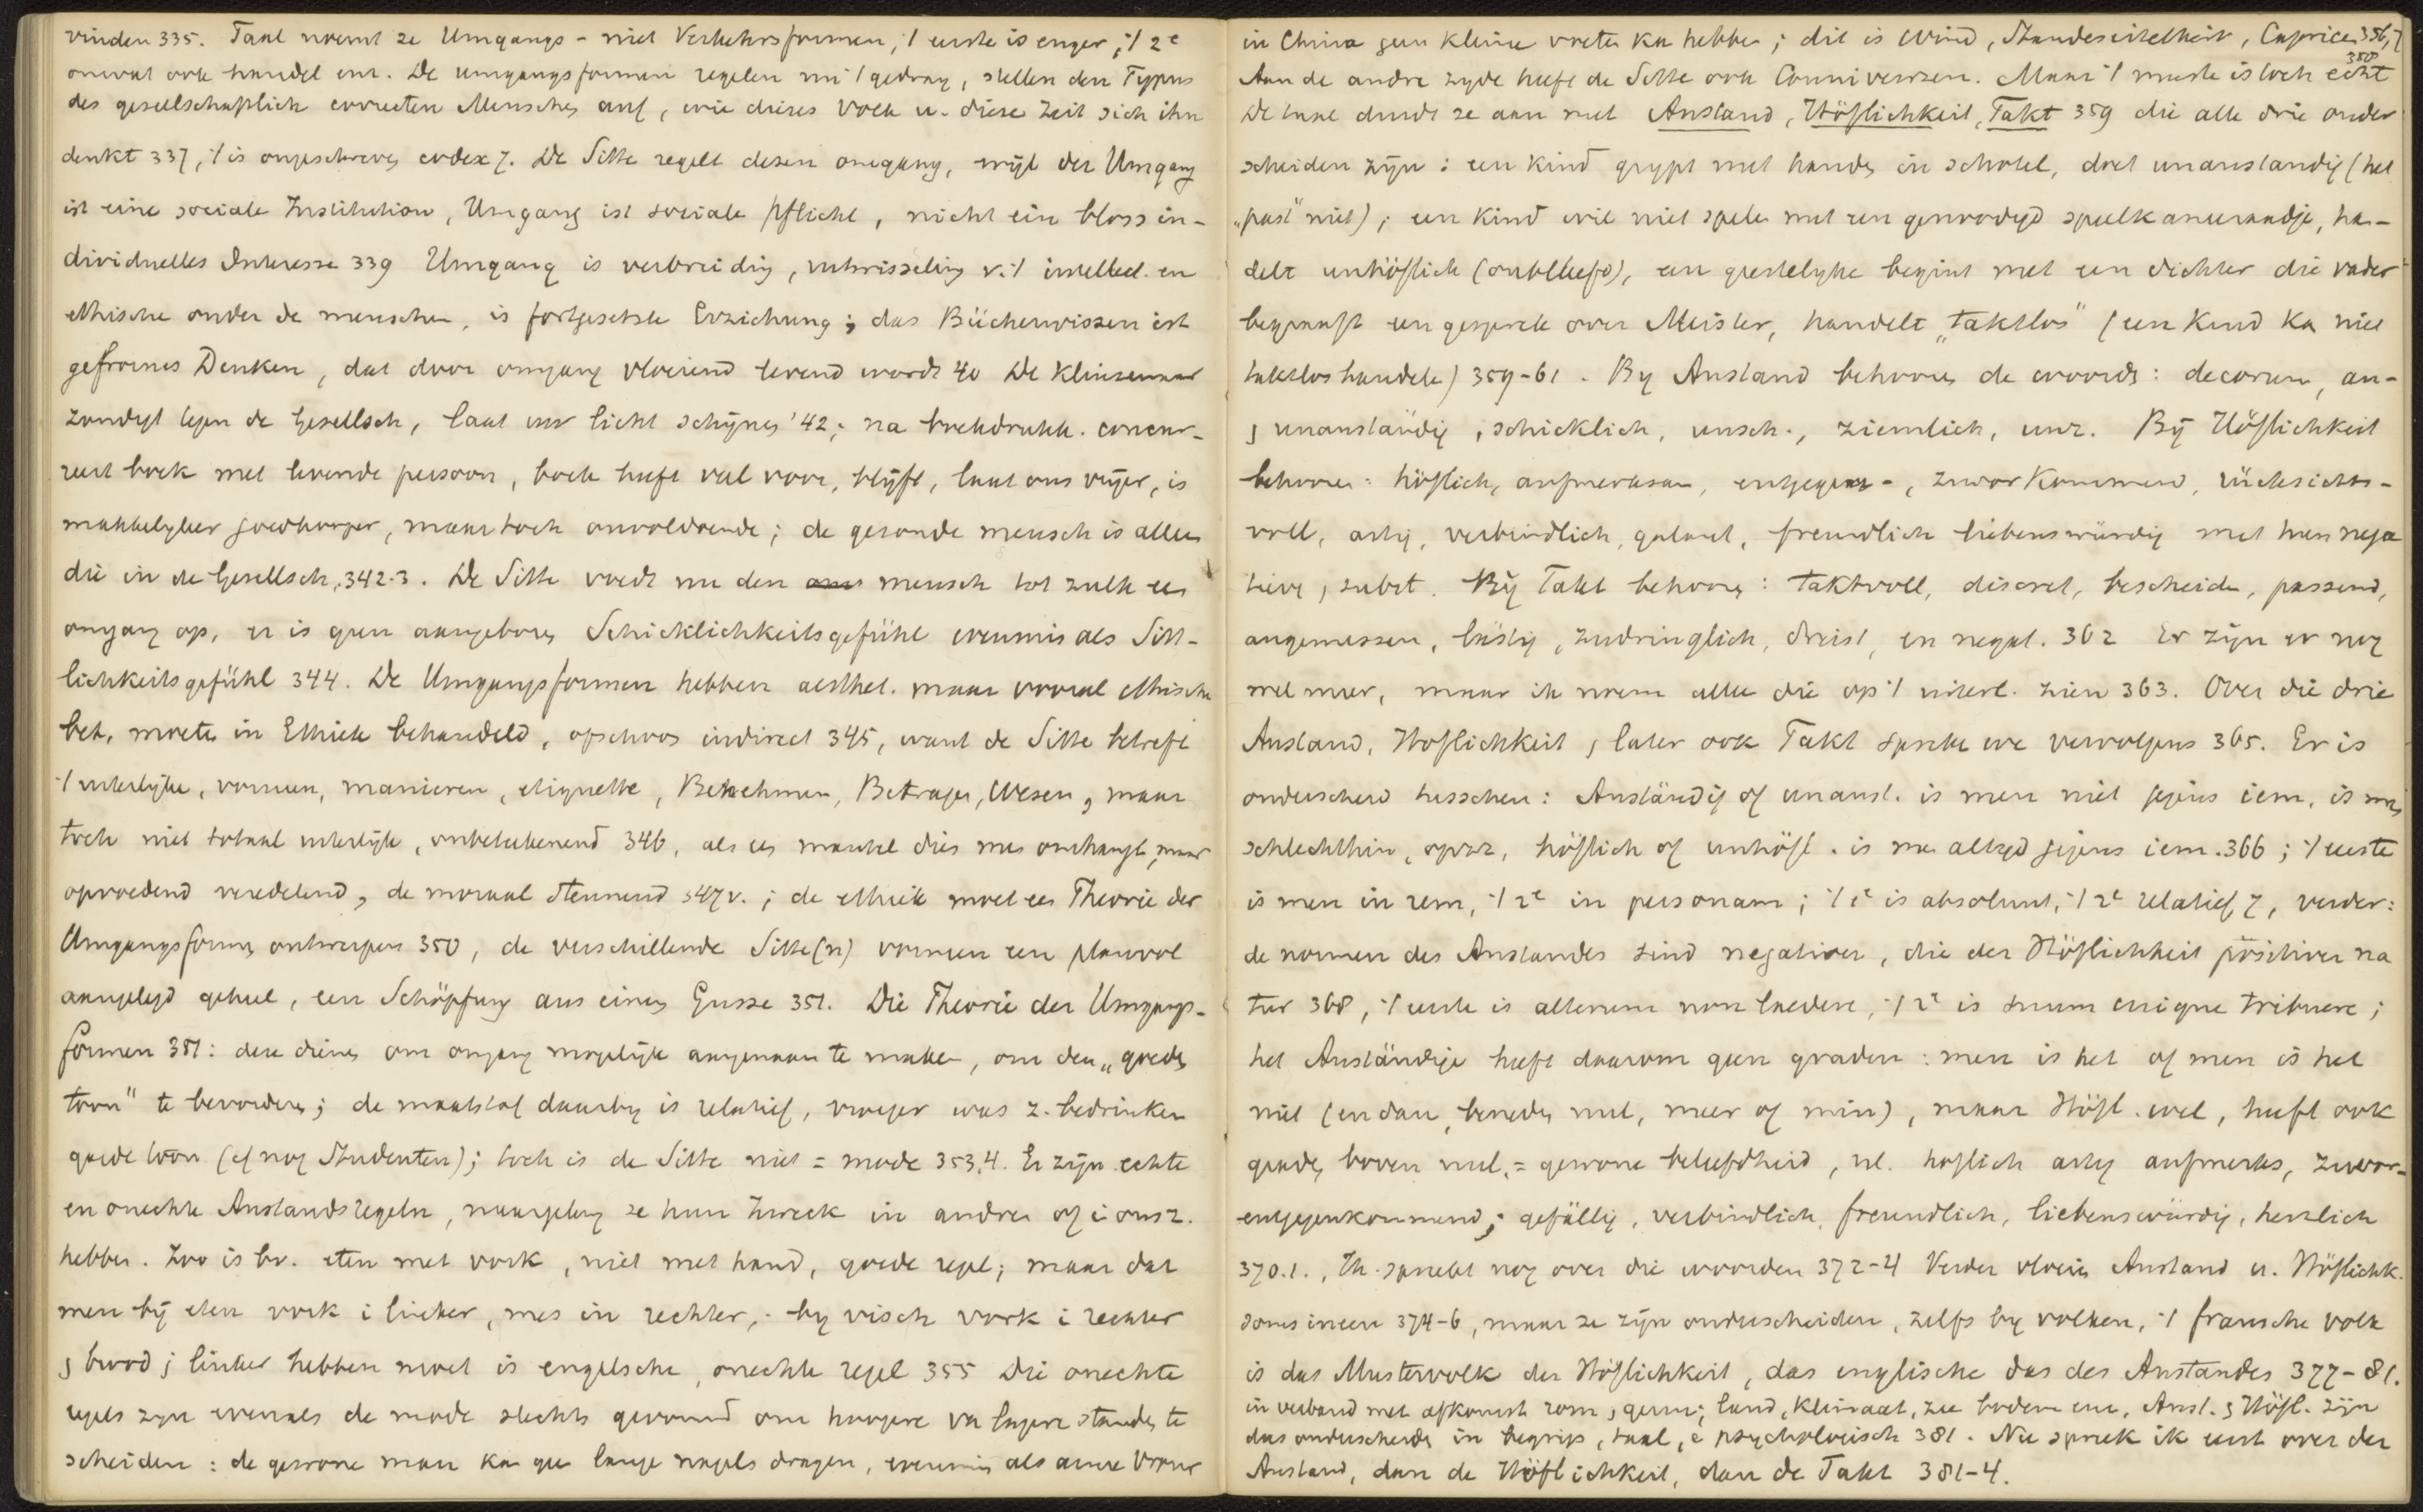 vinden 335. Taal noemt ze Umgangs - niet Verkehrsformen, 't eerste is enger, 't 2e
omvat ook handel enz. De umgangsformen regelen nu 't gedrag, stellen den Typus
des gesellschaftlich correcten Menschen auf, wie dieses Volk u. diese Zeit sich ihn
denkt 337, 't is ongeschreven codex 7. De Sitte regelt dezen omgang, wijl der Umgang
ist eine sociale Institution, Umgang ist sociale Pflicht, nicht ein bloss in-
dividuelles Interesse 339 Umgang is verbreiding, uitwisseling v. 't intellect. en
ethische onder de menschen, is fortgesetzte Erziehung; das Bücherwissen ist
gefrornes Denken, dat door omgang vloeiend levend wordt 40 De kluizenaar
zondigt tegen de Gesellsch, laat zijn licht schijnen '42; na boekdrukk. concur-
reert boek met levende persoon, boek heeft veel voor, blijft, laat ons vrijer, is
makkelijker goedkooper, maar toch onvoldoende; de gezonde mensch is alleen
die in de Gesellsch. 342-3. De Sitte voedt nu den mensch tot zulk een
omgang op, er is geen aangeboren Schicklichkeitsgefühl evenmin als Sitt-
lichkeitsgefühl 344. De Umgangsformen hebben aesthet. maar vooral ethische
bet. moeten in Ethiek behandeld, ofschoon indirect 345, want de Sitte betreft
't uiterlijke, vormen, manieren, etiquette, Benehmen, Betragen, Wesen, maar
toch niet totaal uiterlijk, onbeteekenend 346, als een mantel dien men omhangt, maar
opvoedend veredelend, de moraal steunend 347v.; de ethiek moet een Theorie der
Umgangsformen ontwerpen 350, de verschillende Sitte(n) vormen een planvol
aangelegd geheel, een Schöpfung aus einem Gusse 351. Die Theorie der Umgangs-
formen 351: deze dienen om omgang mogelijk aangenaam te maken, om den „goeden
toon" te bevorderen; de maatstaf daarbij is relatief, vroeger was z. bedrinken
goede toon (cf nog Studenten); toch is de Sitte niet = mode 353,4. Er zijn echte
en onechte Anstandsregeln, naargelang ze hun Zweck in andren of i onsz.
hebben. Zoo is bv. eten met vork, niet met hand, goede regel; maar dat
men bij eten vork i linker, mes in rechter, by visch vork i rechter
, brood i linker hebben moet is engelsche, onechte regel 355 Die onechte
regels zijn evenals de mode slechts gevormd om hoogere van lagere standen te
scheiden: de gewone man kan geen lange nagels dragen, evenmin als arme vrouw
in China geen kleine voeten kan hebben; dit is Wind, Standeseitelkeit, Caprice 356,7
Aan de andre zyde heeft de Sitte ook Connivenzen. Maar 't meeste is toch echt 358
De taal duidt ze aan met Anstand, Höflichkeit, Takt 359 die alle drie onder
scheiden zijn: een kind grypt met handen in schotel, doet unanständig (het
„past" niet); een kind wil niet spelen met een genoodigd speelkameraadje, han-
delt unhöflich (onbeleefd), een geestelyke begint met een dichter die vader
begraaft een gesprek over Meister, handelt „taktlos" (een kind kan niet
taktlos handelen) 359-61. By Anstand behooren de woorden: decorum, an-
, unanständig, schicklich, unsch., ziemlich, unz. Bij Höflichkeit
behooren: höflich, aufmerksam, entgegen-, zuvorkommend, rücksichts-
voll, artig, verbindlich, galant, freundlich liebenswürdig met hun nega
tieve, subst. Bij Takt behooren: taktvoll, discret, bescheiden, passend,
angemessen, lästig, zudringlich, dreist, en negat. 362 Er zijn er nog
veel meer, maar ik noem alle die op 't uiterl. zien 363. Over die drie
Anstand, Höflichkeit, later ook Takt spreken we vervolgens 365. Er is
onderscheid tusschen: Anständig of unanst. is men niet jegens iem, is men
schlechthin, opzz, höflich of unhöfl. is men altyd jegens iem. 366; 't eerste
is men in rem, 't 2e in personam; 't 1e is absoluut, 't 2e relatief, 7, verder:
de normen des Anstandes sind negativer, die der Höflichkeit positiver na
tur 368, 't eerste is alterum non laedere, 't 2e is suum cuique tribuere;
het Anständige heeft daarom geen graden: men is het of men is het
niet (en dan beneden nul, meer of min), maar Höfl. wel, heeft ook
graden boven nul, = gewone beleefdheid, nl. höflich artig aufmerks, zuvor-
entgegenkommend; gefällig, verbindlich, freundlich, liebenswürdig, herzlich
370.1., Ih. spreekt nog over die woorden 372-4 Verder vloeien Anstand u. Höflichk.
soms ineen 374-6, maar ze zijn onderscheiden, zelfs by volken, 't fransche volk
is das Mustervolk der Höflichkeit, das englische das des Anstandes 377-81.
in verband met afkomst rom, germ; land, klimaat, zee bodem enz, Anst. , Höfl. zijn
dus onderscheiden in begrip, taal, psychologisch 381. Nu spreek ik eerst over den
Anstand, dan de Höflichkeit, dan de Takt 381-4.